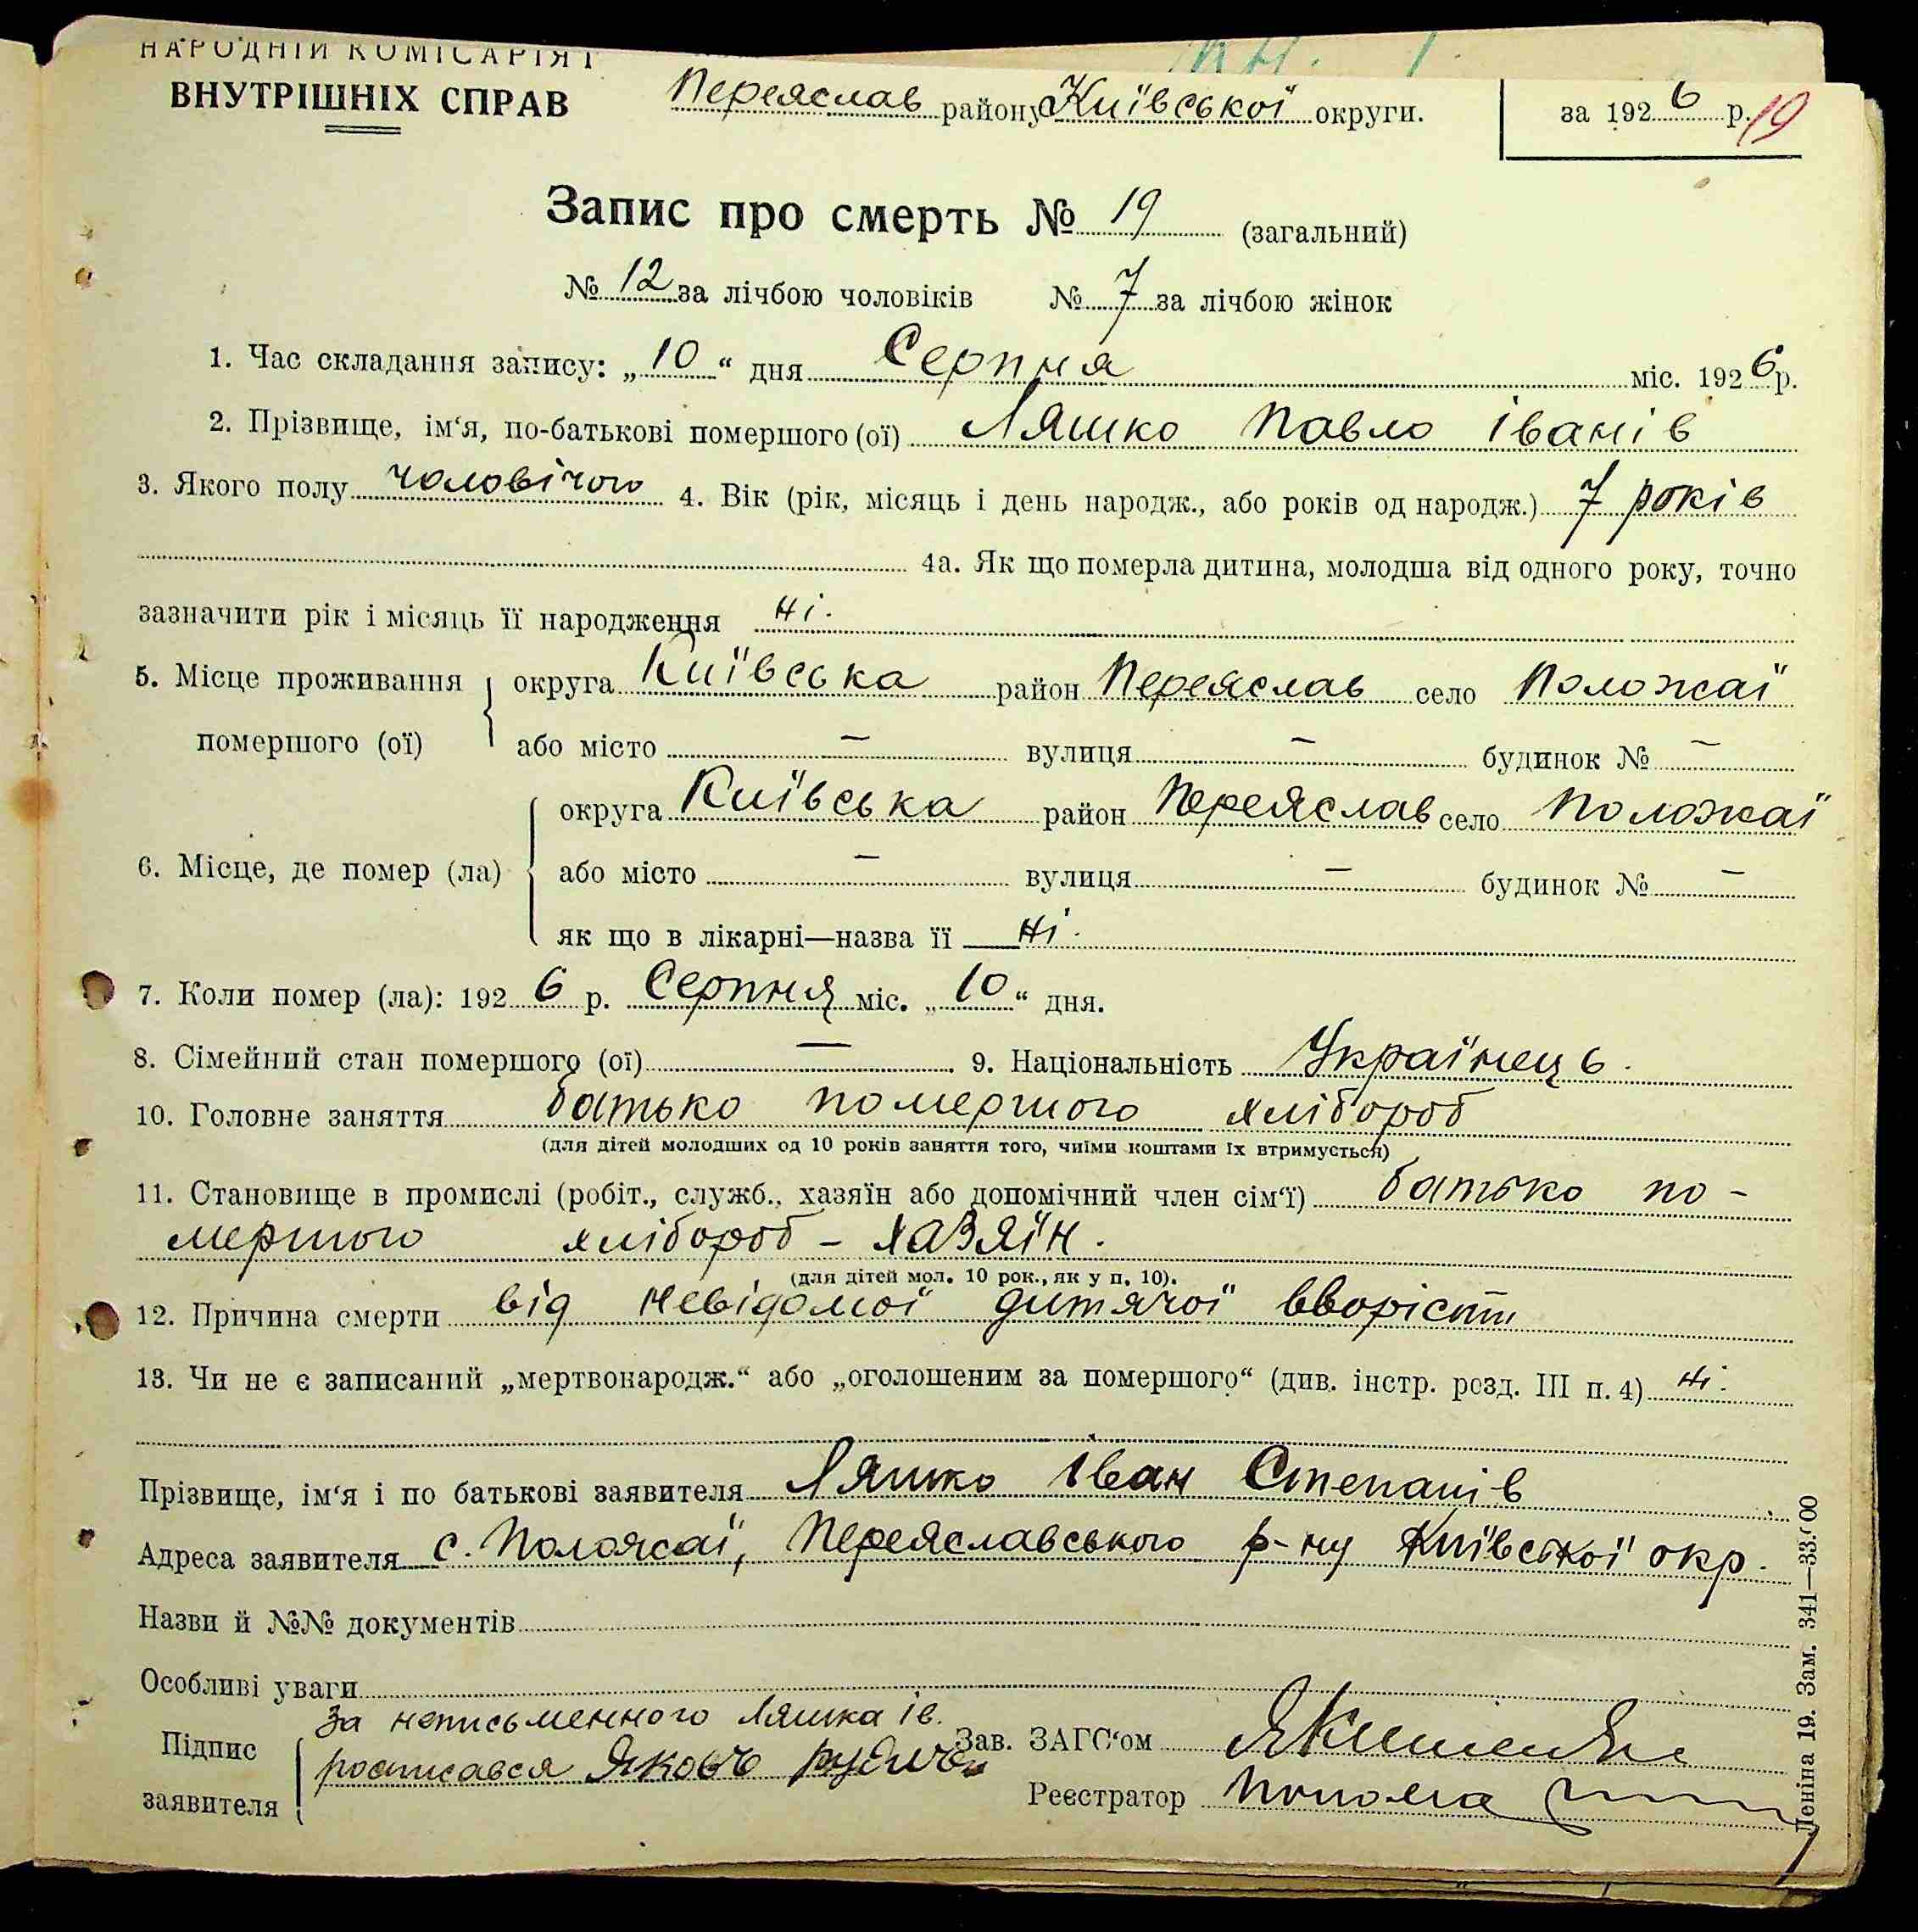 НАРОДНІЙ КОМІСАРІЯТ
ВНУТРІШНІХ СПРАВ
Переяслав району Київської округи.
за 1926 р. 19
Запис про смерть № 19 (загальний)
№ 12 за лічбою чоловіків № 7 за лічбою жінок
1. Час складання запису: „10“ дня Серпня міс. 1926 р.
2. Прізвище, ім‘я, по-батькові помершого (ої) Ляшко Павло Іванів
3. Якого полу чоловічого 4. Вік (рік, місяць і день народж., або років од народж.) 7 років
4а. Як що померла дитина, молодша від одного року, точно
зазначити рік і місяць її народження ні.
5. Місце проживання округа Київська район Переяслав село Положаї
помершого (ої) або місто — вулиця — будинок № —
округа Київська район Переяслав село Положаї
6. Місце, де помер (ла) або місто — вулиця — будинок № —
як що в лікарні—назва її ні.
7. Коли помер (ла): 1926 р. Серпня міс. „10“ дня.
8. Сімейний стан помершого (ої) — 9. Національність Українець.
10. Головне заняття батько помершого хлібороб
(для дітей молодших од 10 років заняття того, чиїми коштами їх втримується)
11. Становище в промислі (робіт., служб., хазяїн або допомічний член сім‘ї) батько по-
мершого хлібороб - хазяїн.
(для дітей мол. 10 рок., як у п. 10).
12. Причина смерти від невідомої дитячої
13. Чи не є записаний „мертвонародж.“ або „оголошеним за помершого“ (див. інстр. розд. III п. 4) ні.
Прізвище, ім‘я і по батькові заявителя Ляшко Іван Степанів
Адреса заявителя с. Положаї, Переяславського р-ну Київської окр.
Назви й №№ документів
Особливі уваги
За неписьменного Ляшка Ів.
Підпис росписався Яковъ
заявителя
Зав. ЗАГС‘ом
Реєстратор
Леніна 19. Зам. 341—33.000